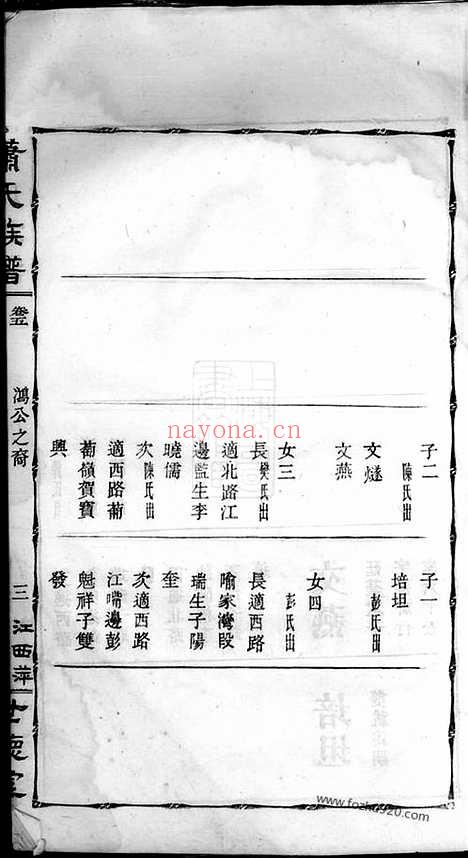 蕭氏族譜
卷五
鴻公之裔
三
江西萍
世德堂
子二
陳氏出
文燧
文燕
女三
長樊氏出
適北路江
邊監生李
曉儒
次陳氏出
適西路葡
萄嶺賀寶
興
子一
培坦
彭氏出
女四
彭氏出
長適西路
喻家灣段
瑞生子陽
奎
次適西路
江嘴邊彭
魁祥子雙
發
nayona.cn
www.fozhu920.com